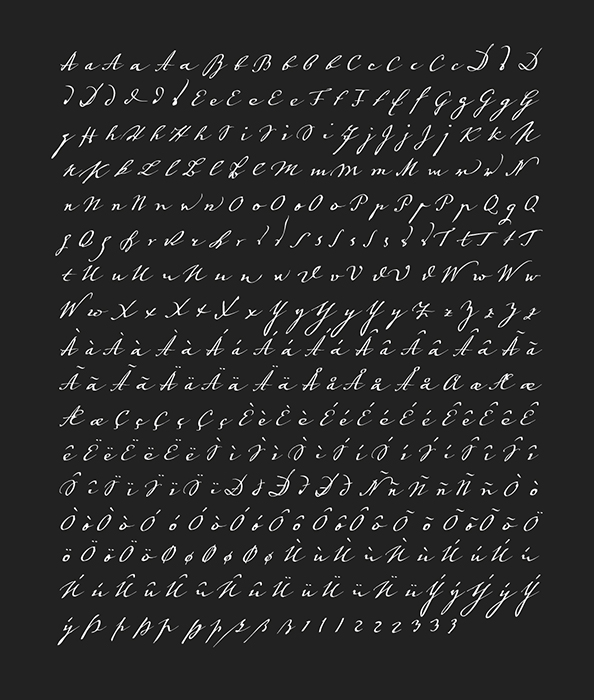 A a A a A a B b B b B b C c C c C c D d D
d D d d d d E e E e E e F f F f f f G g G g G
g H h H h H h I i I i I i J j J j J j K k K
k K k L l L l L l M m M m M m n n N
n N n N n w n O o O o O o P p P p P p Q q Q
q Q q R r R r R r S s S s S s S s T t T t T
t U u U u U u u w V v V v V v W w W w
W w X x X x X x Y y Y y Y y Z z Z z Z z
À à À à À à Á á Á á Á á Â â Â â Â â Ã ã
Ã ã Ã ã Ä ä Ä ä Ä ä Å å Å å Å å Æ æ Æ æ
Æ æ Ç ç Ç ç Ç ç È è È è È è É é É é É é Ê ê Ê ê Ê
ê Ë ë Ë ë Ë ë Ì ì Ì ì Ì ì Í í Í í Í í Î î Î î
Î î Ï ï Ï ï Ï ï Ð ð Ð ð Ð ð Ñ ñ Ñ ñ Ñ ñ Ò ò
Ò ò Ò ò Ó ó Ó ó Ó ó Ô ô Ô ô Ô ô Õ õ Õ õ Õ õ Ö
ö Ö ö Ö ö Ø ø Ø ø Ø ø Ù ù Ù ù Ù ù Ú ú Ú ú
Ú ú Û û Û û Û û Ü ü Ü ü Ü ü Ý ý Ý ý Ý
ý Þ þ Þ þ Þ þ ß ß ß 1 1 1 2 2 2 3 3 3